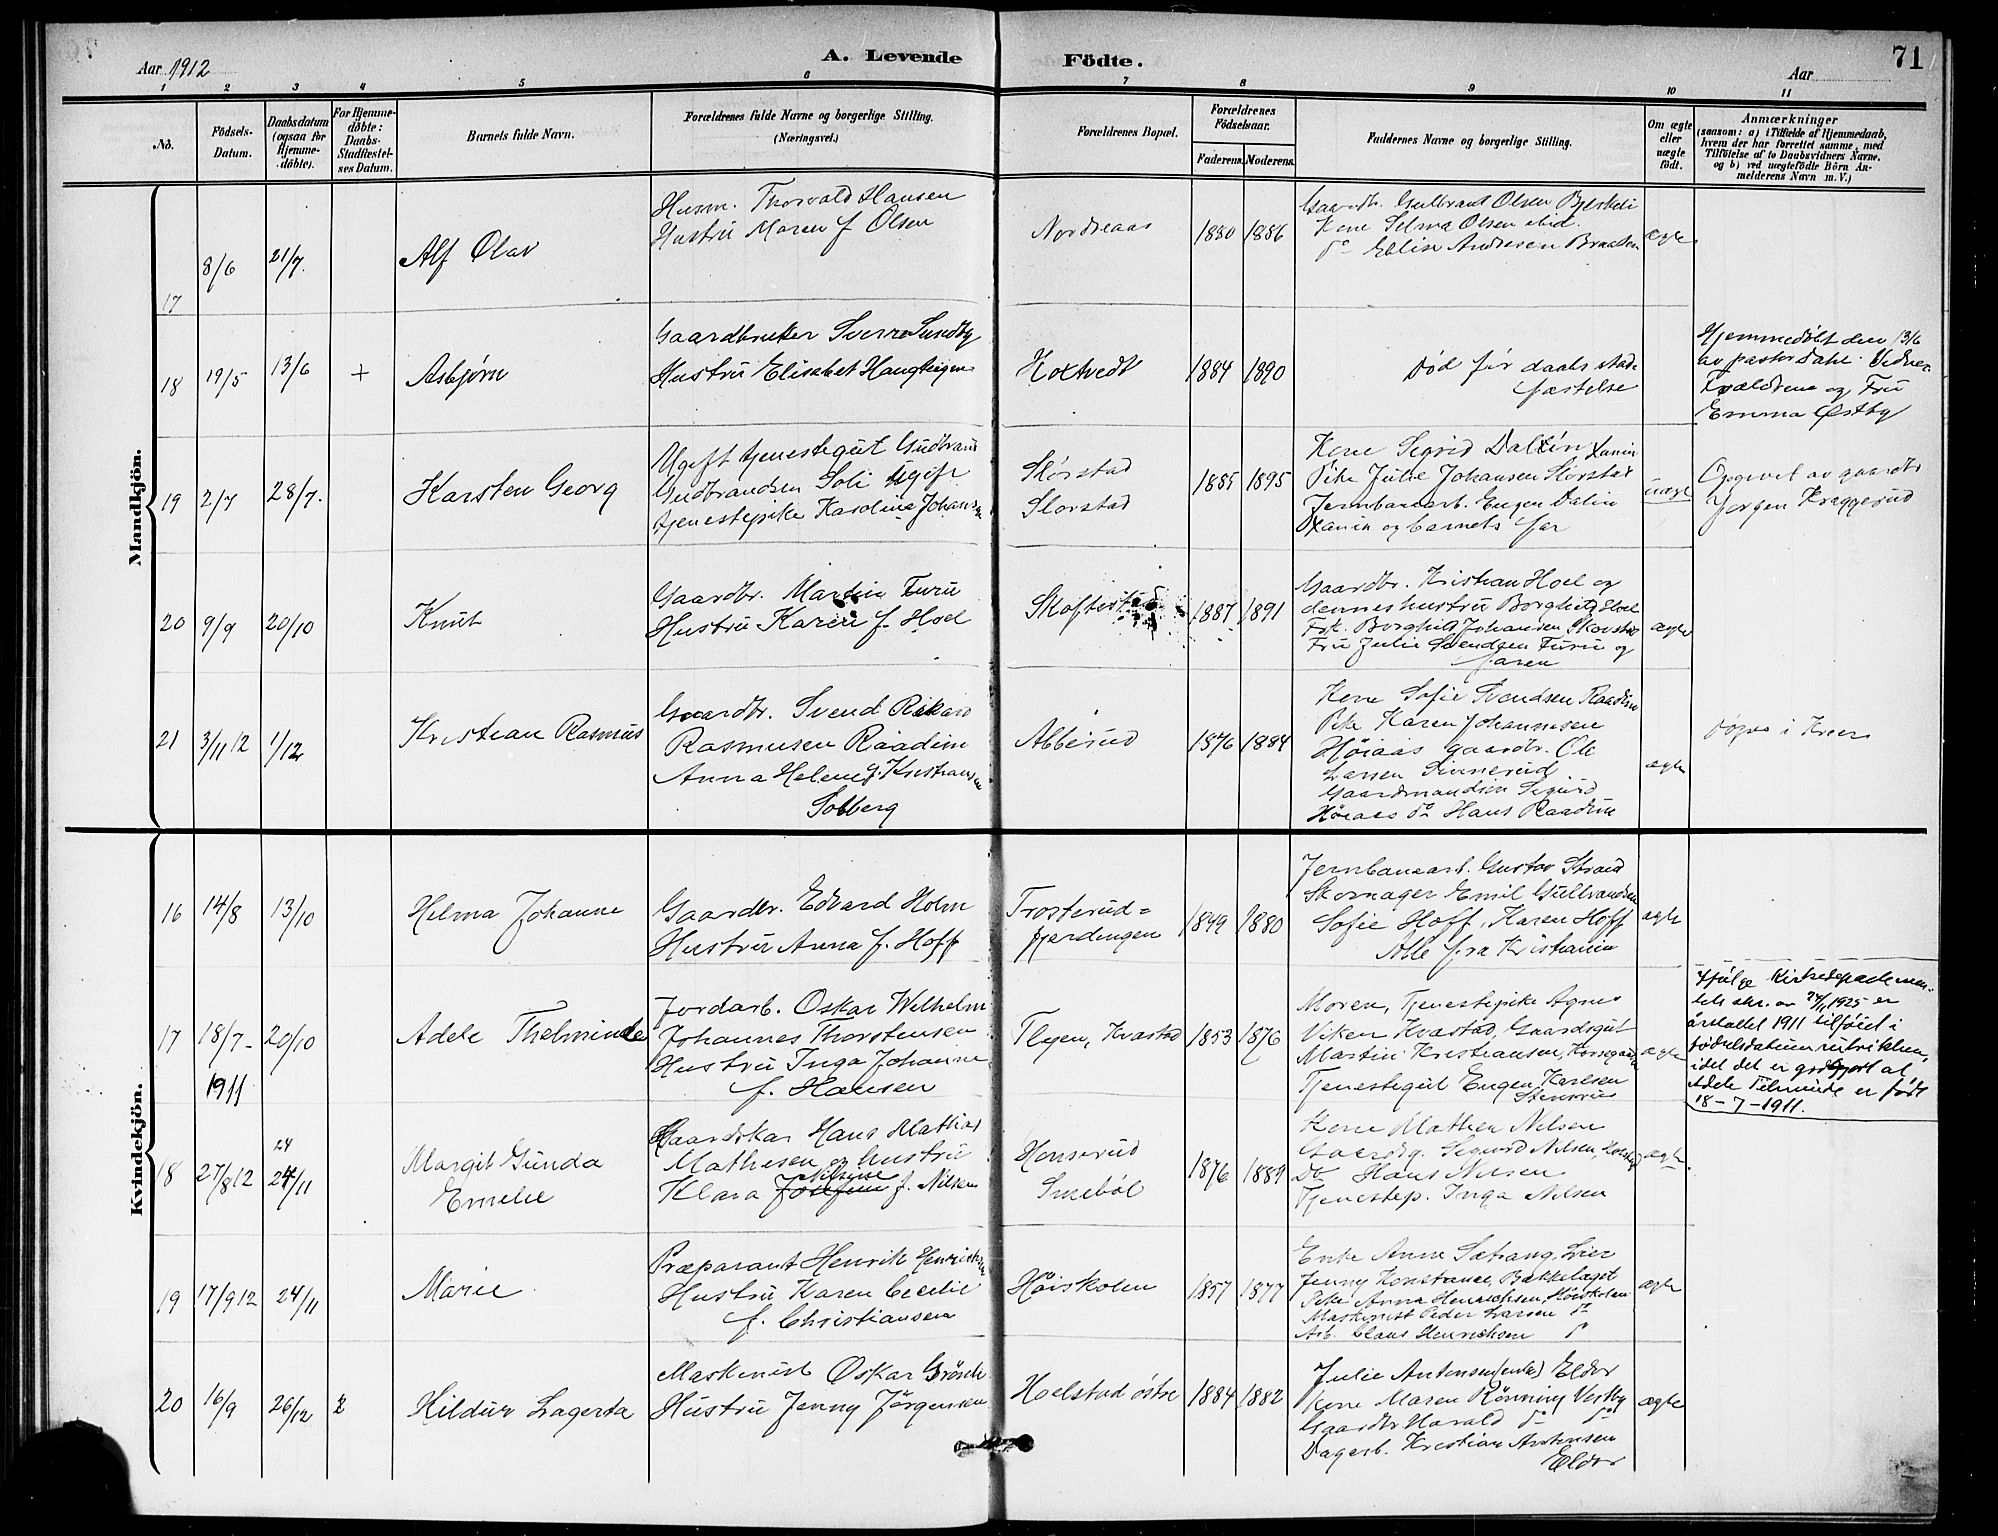 Aar 1912
A. Levende Födte.
71
Aar
1 2 3 4 5 6 7 8 9 10 11
No.
Födsels-Datum.
Daabsdatum (ogsaa for Hjemme-döbte).
For Hjemme-döbte: Daabs-Stadfæstel-ses Datum.
Barnets fulde Navn.
Forældrenes fulde Navne og borgerlige Stilling.
(Næringsvei.)
Forældrenes Bopæl.
Forældrenes Födselsaar.
Faderens. Moderens.
Faddernes Navne og borgerlige Stilling.
Om ægte eller uægte födt.
Anmærkninger
(saasom: a) i Tilfælde af Hjemmedaab,
hvem der har forrettet samme, med
Tilföielse af to Daabsvidners Navne,
og b) ved uægtefödte Börn An-
melderens Navn m. V.)
Mandkjön.
17 8/6 21/7.
Alf Olav
Husm. Thorvald Hansen
Hustru Maren f Olsen
Nordreaas
1880 1886
Gaardbr. Gulbrant Olsen Bjerkeli
Kone Selma Olsen ibid.
do Elise Andresen Braaten
ægte
18 19/5 13/6 +
Asbjørn
Gaardbruker Sverre Sundby
Hustru Elisabet Haugteigen
Hoxtvedt
1884 1890
Død før daabs stad-
fæstelse
Hjemmedøbt den 13/6
av pastor Dahl. Vidner
Forældrene og Fru
Emma Østby
19 2/7 28/7.
Karsten Georg
Ugift tjenestegut Gudbrand
Gudbrandsen Soli ugift
tjenestepike Karoline Johansen
Skorstad
Slorstad
1885 1895
Kone Sigrid Dalin
Pike Julie Johansen Slorstad
Jernbanearb. Eugen Dalin
og barnets far
uægte
Opgivet av gaardbr
Jørgen Kraggerud
20 9/9 20/10
Knut
Gaardbr. Martin Furu
Hustru Karen f. Hoel
Skoftestad
1887 1891
Gaardbr. Kristian Hoel og
dennes hustru Borghild Hoel
Frk. Borghild Johansen, Skovstad
Fru Julie Svendsen Furu og
faren
ægte
21 3/11 12 1/12
Kristian Rasmus
Gaardbr. Svend Rikard
Rasmusen Raadim
Anna Helene f. Kristiansen
Solberg
Abberud
1876 1884
Kone Sofie Svendsen Raadim
Pike Karen Johannesen
Høiaas gaardbr. Ole
Larsen Sinnerud
Gaardmandssøn Sigurd
Høiaas do Hans Raadim
ægte
Døpt i Kroer
Kvindekjön.
16 14/8 13/10
Helma Johanne
Gaardbr. Edvard Holm
Hustru Anna f. Hoff
Trosterud=
fjerdingen
1849 1880
Jernbanearb. Gustav Strand
Skomager Emil Gulbrandsen
Sofie Hoff, Karen Hoff
Alle fra Kristiania
ægte
17 18/7- 20/10
1911
Adele Thelminde
Jordarb. Oskar Wilhelm
Johannes Thorstensen
Hustru Inga Johanne
f. Hansen
Flyen, Kvastad
1853 1876
Moren, Tjenestepike Agnes
Viken Kvastad, Gaardsgut
Martin Kristiansen, Korsegaard
Tjenestegut Eugen Karlsen
Stensrud
ægte
Ifølge Kirkedepartemen-
tets skr. av 24/1 1925 er
årstallet 1911 tilføiet i
fødselsdatumrubrikken,
idet det er godtgjort at
Adele Telminde er født
18-7-1911.
18 27/8 12 24/11
24
Margit Gunda
Emelie
Gaardskar Hans Mathias
Mathesen og hustru
Nilsine
Klara Josefine f. Nilsen
Honserud
Smebøl
1876 1889
Kone Mathea Nilsen
Gaardbg. Sigurd Nilsen,
Do Hans Nilsen
Tjenestep. Inga Nilsen
ægte
19 17/9 12 24/11
Marie
Præparant Henrik Henrichsen
Hustru Karen Cecilie
f. Christiansen
Høiskolen
1857 1877
Enke Anne Sætrang, Lier
Jenny Konstance, Bækkelaget
Pike Anna Henrichsen, Høiskolen
Maskinist Peder Larsen do
Arb. Claus Henrichsen do
ægte
20 16/9 26/12 2
Hildur Lagerta
Maskinist Oskar
Hustru Jenny Jørgensen
Holstad østre
1884 1882
Julie Antonsen (enke) Eldor
Kone Maren Rønning Vestby
Gaardbr Harald do do
Dagarb. Kristian Antonsen
Eldor
ægte